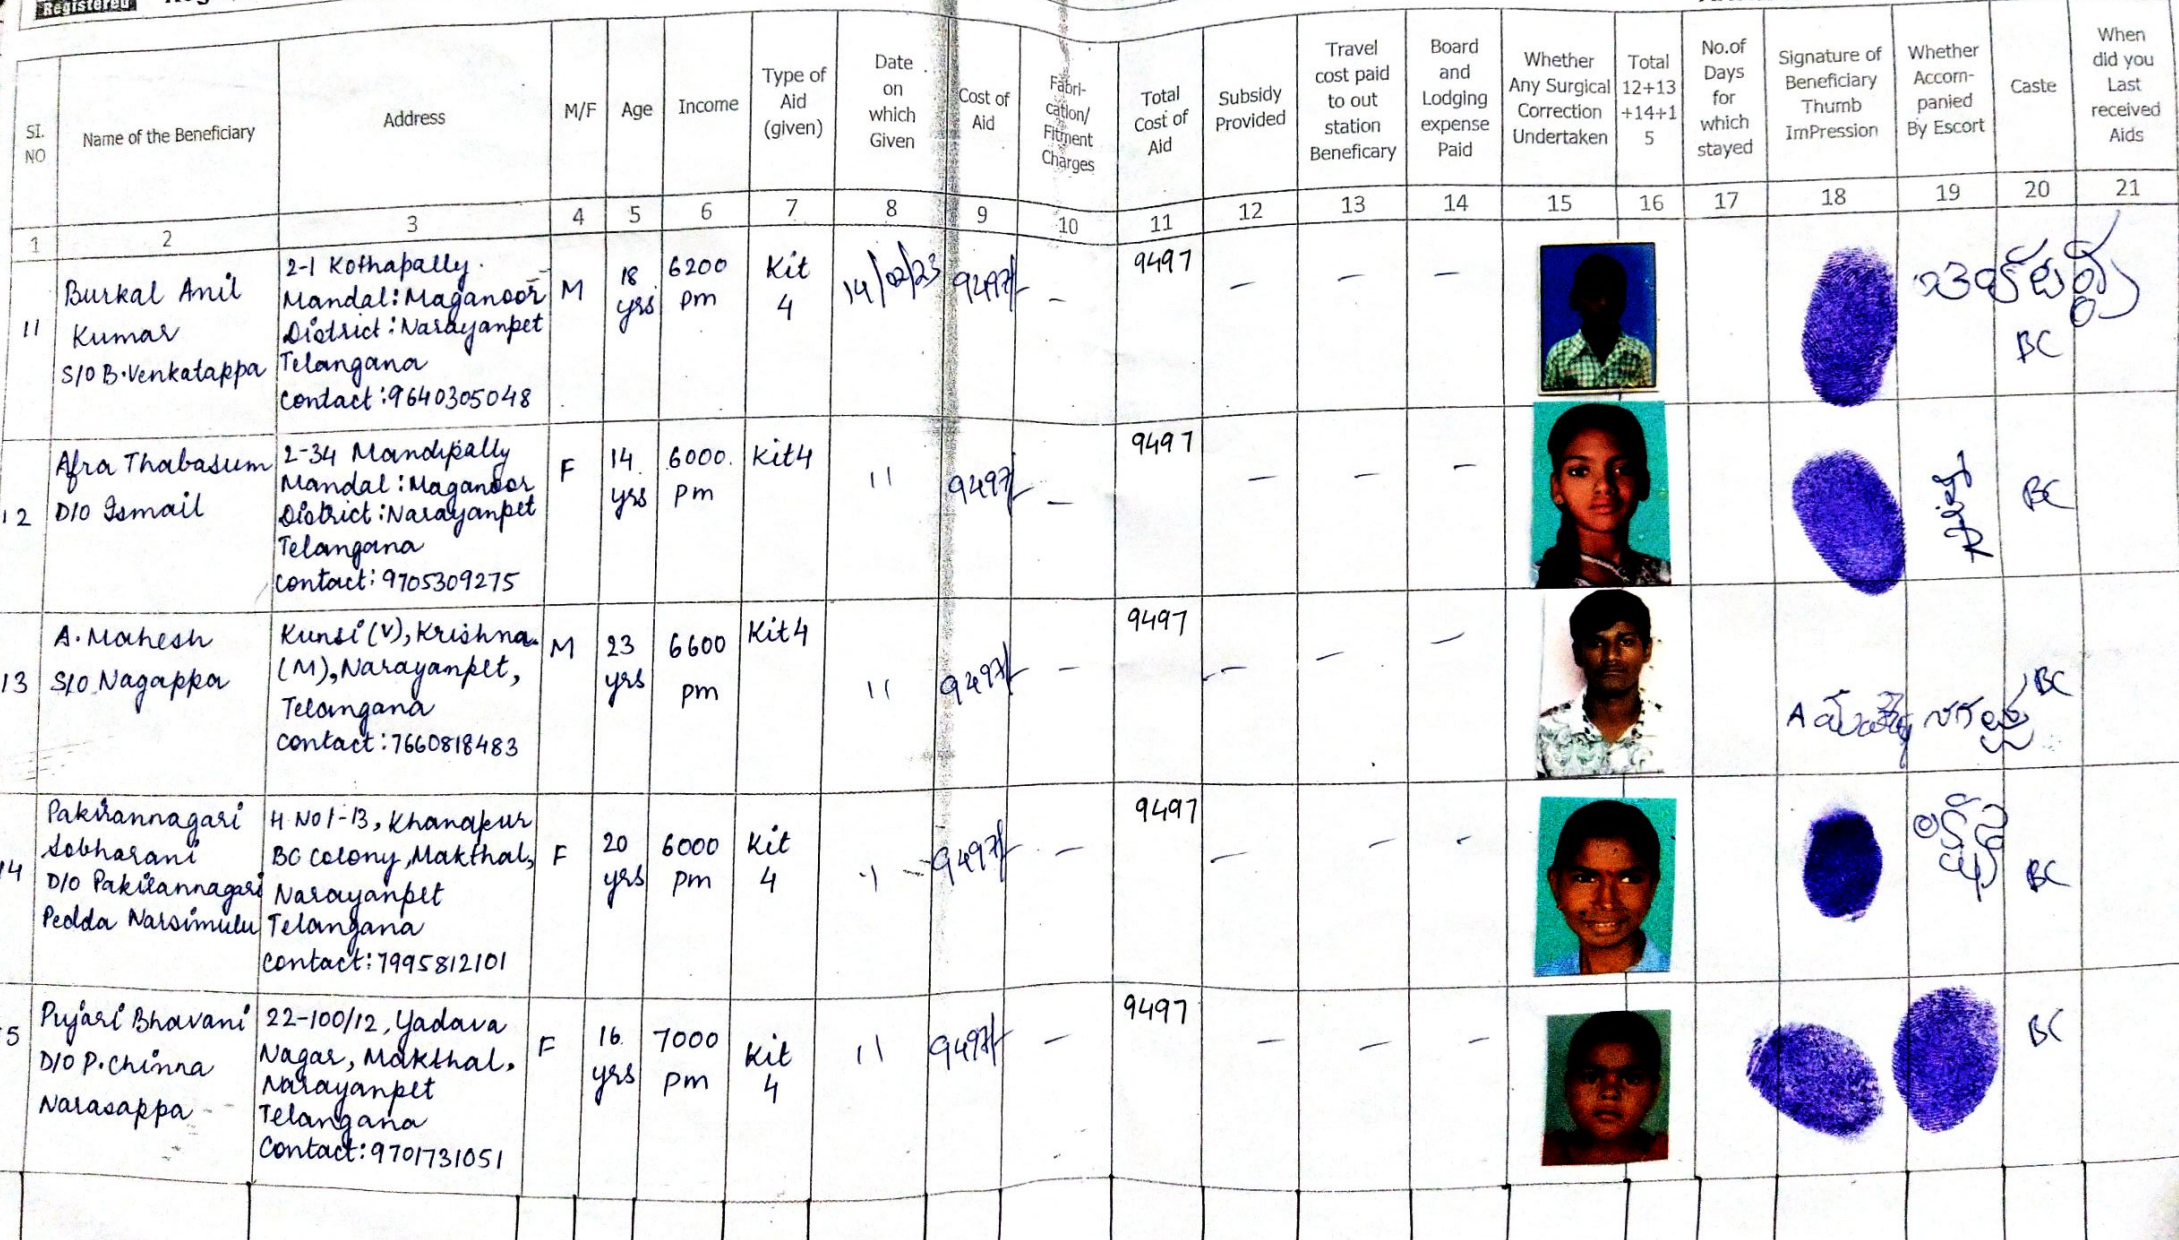 Registered
SI. NO
Name of the Beneficiary
Address
M/F
Age
Income
Type of Aid (given)
Date on which Given
Cost of Aid
Fabri-cation/ Fitment Charges
Total Cost of Aid
Subsidy Provided
Travel cost paid to out station Beneficary
Board and Lodging expense Paid
Whether Any Surgical Correction Undertaken
Total 12+13 +14+1 5
No.of Days for which stayed
Signature of Beneficiary Thumb ImPression
Whether Accom-panied By Escort
Caste
When did you Last received Aids
1 2 3 4 5 6 7 8 9 10 11 12 13 14 15 16 17 18 19 20 21
11
Burkal Anil
Kumar
S/O B.Venkatappa
2-1 Kothapally.
Mandal: Maganoor
District: Narayanpet
Telangana
Contact: 9640305048
M
18
yrs
6200
pm
Kit
4
14/02/23
9497/-
-
9497
- - -
BC
12
Afra Thabasum
D/O Ismail
2-34 Mandipally
Mandal: Maganoor
District: Narayanpet
Telangana
contact: 9705309275
F
14
yrs
6000
pm
Kit4
11
9497/-
-
9497
- - -
BC
13
A. Mahesh
S/O Nagappa
Kunsi (V), Krishna
(M), Narayanpet,
Telangana
Contact: 7660818483
M
23
yrs
6600
pm
Kit4
11
9497/-
-
9497
- - -
A
BC
14
Pakirannagari
Sobharani
D/O Pakirannagari
Pedda Narsimulu
H No 1-13, Khanapur
BC Colony, Makthal,
Narayanpet
Telangana
Contact: 7995812101
F
20
yrs
6000
pm
Kit
4
9497/-
-
9497
- - -
BC
5
Pujari Bhavani
D/O P. Chinna
Narasappa
22-100/12, Yadava
Nagar, Makthal,
Narayanpet
Telangana
Contact: 9701731051
F
16
yrs
7000
pm
Kit
4
11
9497/-
-
9497
- - -
BC